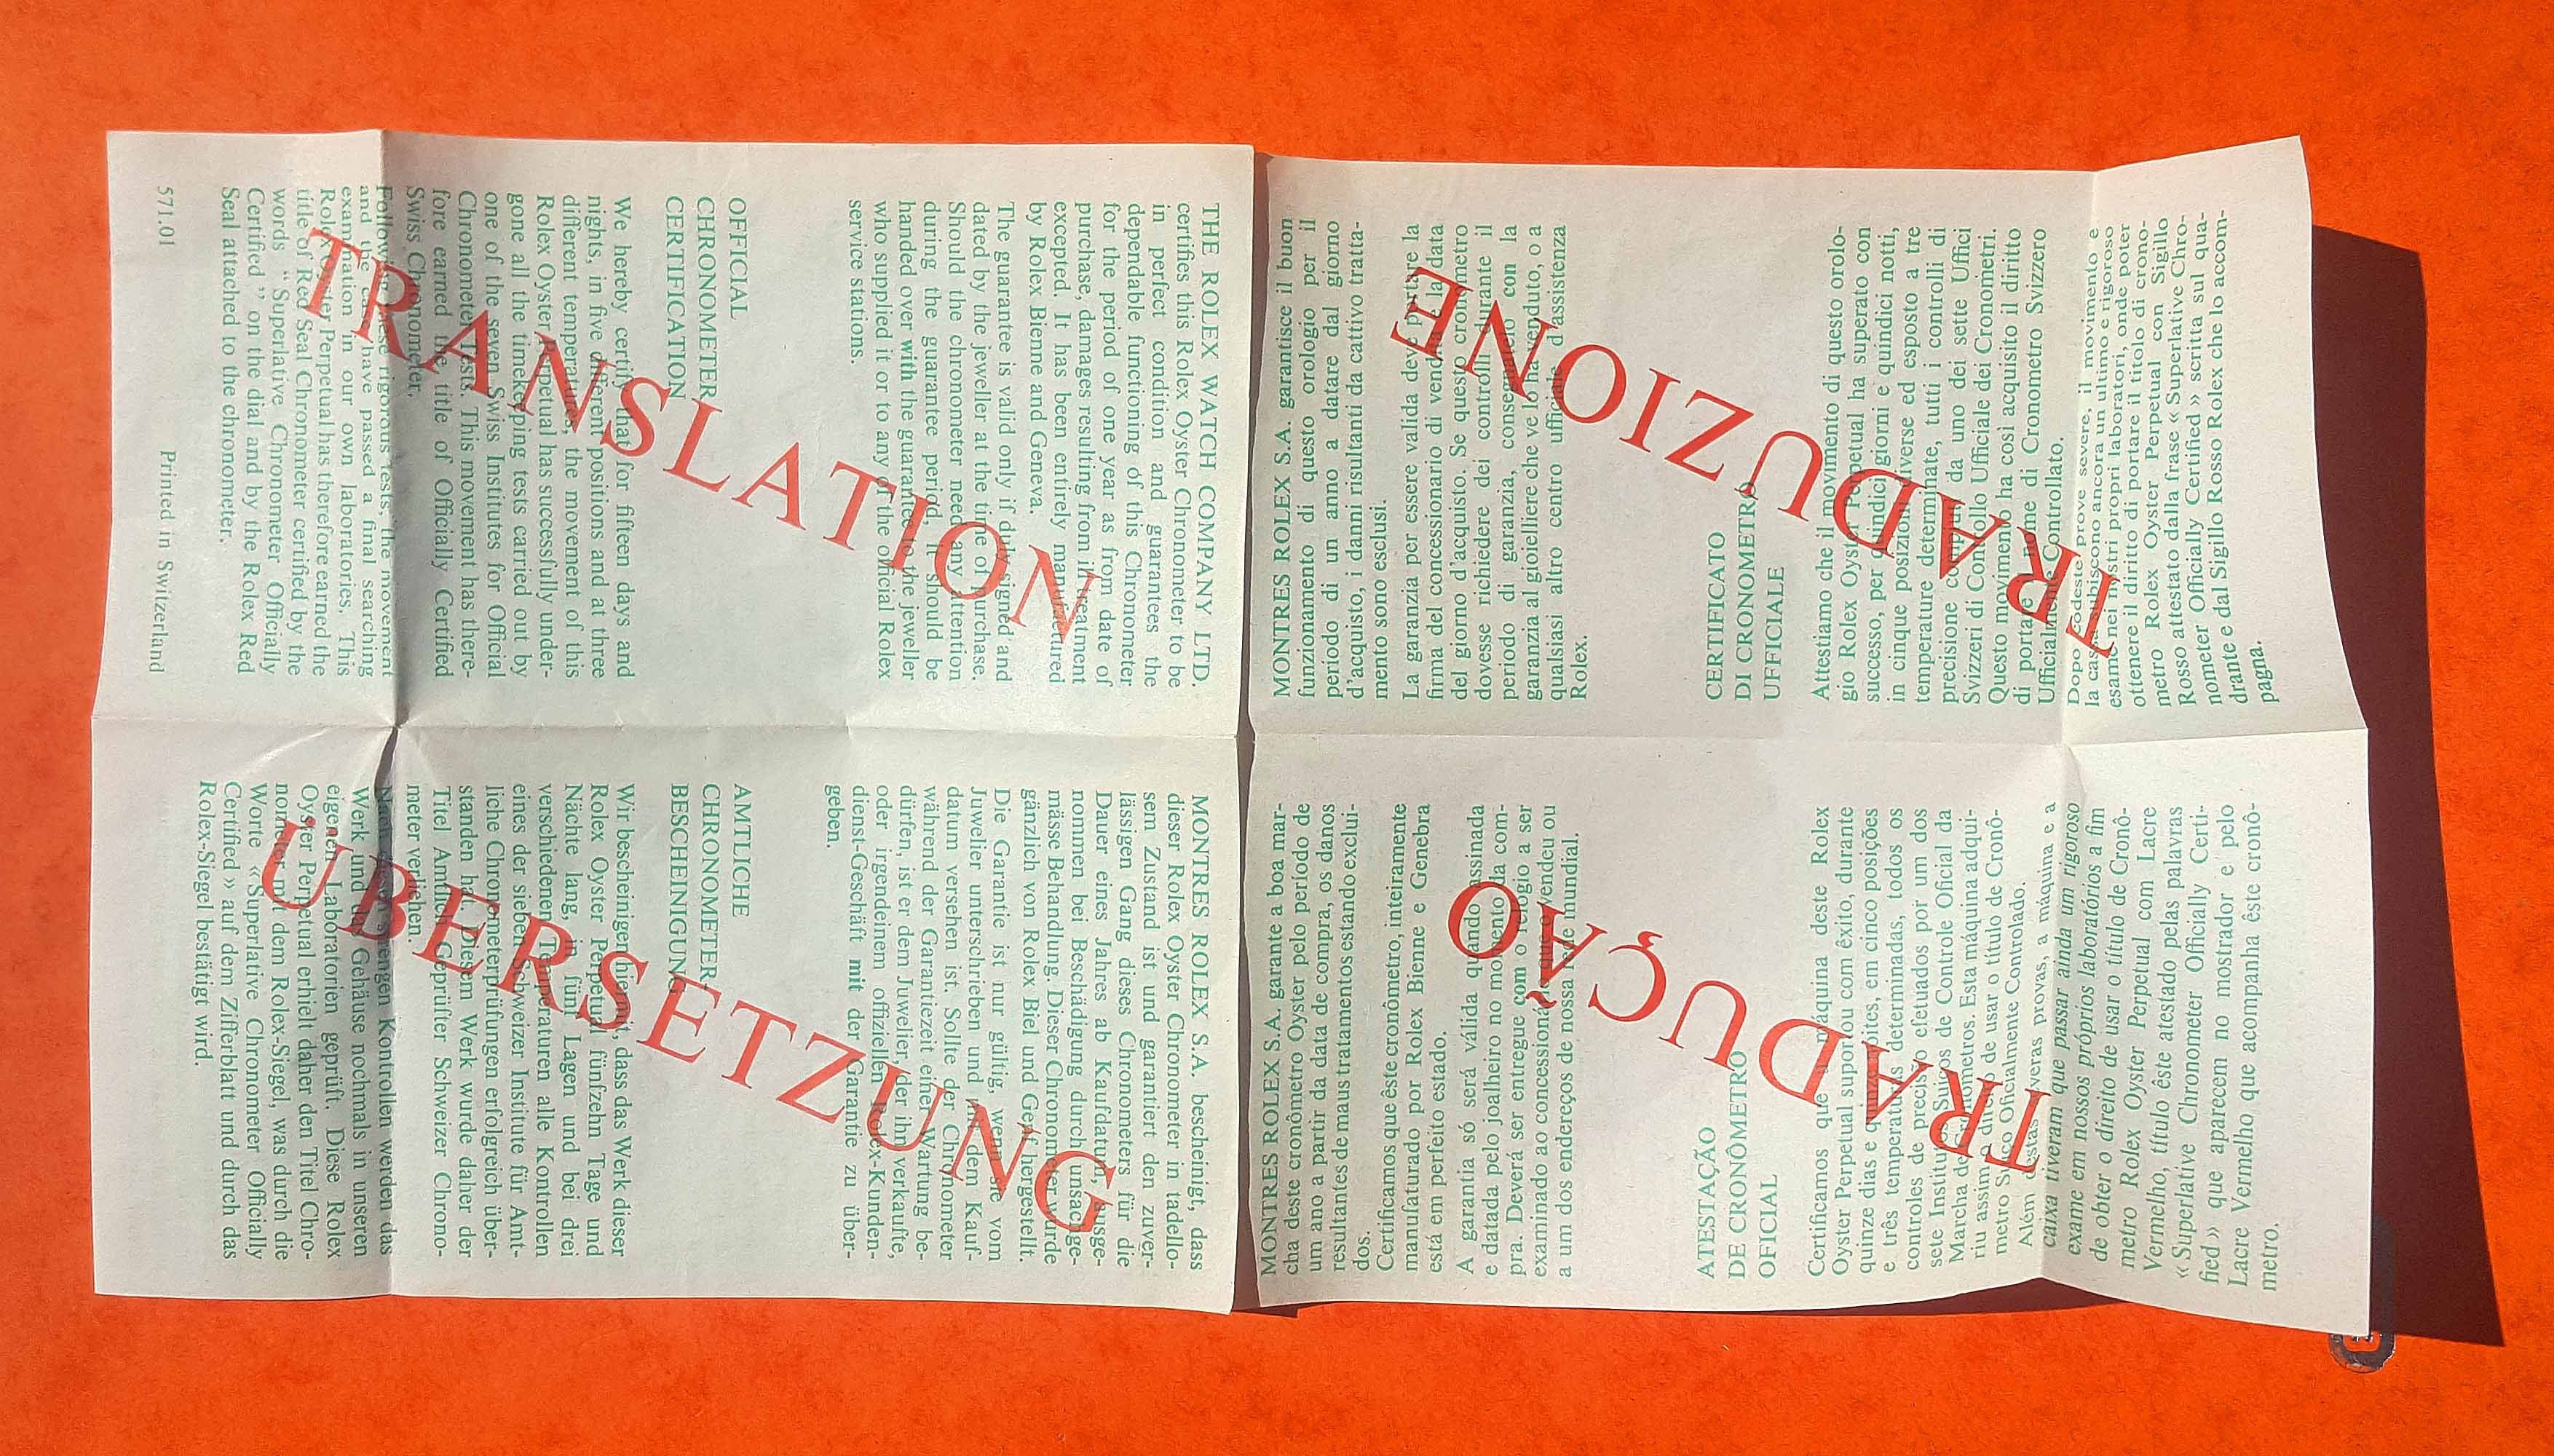 THE ROLEX WATCH COMPANY LTD.
certifies this Rolex Oyster Chronometer to be
in perfect condition and guarantees the
dependable functioning of this Chronometer
for the period of one year as from date of
purchase, damages resulting from illtreatment
excepted. It has been entirely manufactured
by Rolex Bienne and Geneva.
The guarantee is valid only if duly signed and
dated by the jeweller at the time of purchase.
Should the chronometer need any attention
during the guarantee period, it should be
handed over with the guarantee to the jeweller
who supplied it or to any of the official Rolex
service stations.
OFFICIAL
CHRONOMETER
CERTIFICATION
We hereby certify that for fifteen days and
nights, in five different positions and at three
different temperatures, the movement of this
Rolex Oyster Perpetual has successfully under-
gone all the timekeeping tests carried out by
one of the seven Swiss Institutes for Official
Chronometer Tests. This movement has there-
fore earned the title of Officially Certified
Swiss Chronometer.
Following these rigorous tests, the movement
and the case have passed a final searching
examination in our own laboratories. This
Rolex Oyster Perpetual has therefore earned the
title of Red Seal Chronometer certified by the
words “Superlative Chronometer Officially
Certified” on the dial and by the Rolex Red
Seal attached to the chronometer.
571.01 Printed in Switzerland
TRANSLATION
MONTRES ROLEX S.A. bescheinigt, dass
dieser Rolex Oyster Chronometer in tadello-
sem Zustand ist und garantiert den zuver-
lässigen Gang dieses Chronometers für die
Dauer eines Jahres ab Kaufdatum, ausge-
nommen bei Beschädigung durch unsachge-
mässe Behandlung. Dieser Chronometer wurde
gänzlich von Rolex Biel und Genf hergestellt.
Die Garantie ist nur gültig, wenn sie vom
Juwelier unterschrieben und mit dem Kauf-
datum versehen ist. Sollte der Chronometer
während der Garantiezeit einer Wartung be-
dürfen, ist er dem Juwelier, der ihn verkaufte,
oder irgendeinem offiziellen Rolex-Kunden-
dienst-Geschäft mit der Garantie zu über-
geben.
AMTLICHE
CHRONOMETER-
BESCHEINIGUNG
Wir bescheinigen hiermit, dass das Werk dieser
Rolex Oyster Perpetual fünfzehn Tage und
Nächte lang, in fünf Lagen und bei drei
verschiedenen Temperaturen alle Kontrollen
eines der sieben Schweizer Institute für Amt-
liche Chronometerprüfungen erfolgreich über-
standen hat. Diesem Werk wurde daher der
Titel Amtlich Geprüfter Schweizer Chrono-
meter verliehen.
Nach diesen strengen Kontrollen werden das
Werk und das Gehäuse nochmals in unseren
eigenen Laboratorien geprüft. Diese Rolex
Oyster Perpetual erhielt daher den Titel Chro-
nometer mit dem Rolex-Siegel, was durch die
Worte «Superlative Chronometer Officially
Certified» auf dem Zifferblatt und durch das
Rolex-Siegel bestätigt wird.
ÜBERSETZUNG
MONTRES ROLEX S.A. garantisce il buon
funzionamento di questo orologio per il
periodo di un anno a datare dal giorno
d'acquisto, i danni risultanti da cattivo tratta-
mento sono esclusi.
La garanzia per essere valida deve portare la
firma del concessionario di vendita e la data
del giorno d'acquisto. Se questo cronometro
dovesse richiedere dei controlli durante il
periodo di garanzia, consegnatelo con la
garanzia al gioielliere che ve lo ha venduto, o a
qualsiasi altro centro ufficiale d'assistenza
Rolex.
CERTIFICATO
DI CRONOMETRO
UFFICIALE
Attestiamo che il movimento di questo orolo-
gio Rolex Oyster Perpetual ha superato con
successo, per quindici giorni e quindici notti,
in cinque posizioni diverse ed esposto a tre
temperature determinate, tutti i controlli di
precisione compiuti da uno dei sette Uffici
Svizzeri di Controllo Ufficiale dei Cronometri.
Questo movimento ha così acquisito il diritto
di portare il nome di Cronometro Svizzero
Ufficialmente Controllato.
Dopo codeste prove severe, il movimento e
la cassa subiscono ancora un ultimo e rigoroso
esame nei nostri propri laboratori, onde poter
ottenere il diritto di portare il titolo di crono-
metro Rolex Oyster Perpetual con Sigillo
Rosso attestato dalla frase «Superlative Chro-
nometer Officially Certified» scritta sul qua-
drante e dal Sigillo Rosso Rolex che lo accom-
pagna.
TRADUZIONE
MONTRES ROLEX S.A. garante a boa mar-
cha deste cronômetro Oyster pelo período de
um ano a partir da data de compra, os danos
resultantes de maus tratamentos estando exclui-
dos.
Certificamos que êste cronômetro, inteiramente
manufaturado por Rolex Bienne e Genebra
está em perfeito estado.
A garantia só será válida quando assinada
e datada pelo joalheiro no momento da com-
pra. Deverá ser entregue com o relógio a ser
examinado ao concessionário que o vendeu ou
a um dos endereços de nossa rede mundial.
ATESTAÇÃO
DE CRONÔMETRO
OFICIAL
Certificamos que a máquina deste Rolex
Oyster Perpetual suportou com êxito, durante
quinze dias e quinze noites, em cinco posições
e três temperaturas determinadas, todos os
controles de precisão efetuados por um dos
sete Institutos Suiços de Controle Oficial da
Marcha de Cronômetros. Esta máquina adqui-
riu assim o direito de usar o título de Cronô-
metro Suiço Oficialmente Controlado.
Além destas severas provas, a máquina e a
caixa tiveram que passar ainda um rigoroso
exame em nossos próprios laboratórios a fim
de obter o direito de usar o título de Cronô-
metro Rolex Oyster Perpetual com Lacre
Vermelho, título êste atestado pelas palavras
«Superlative Chronometer Officially Certi-
fied» que aparecem no mostrador e pelo
Lacre Vermelho que acompanha êste cronô-
metro.
TRADUÇÃO